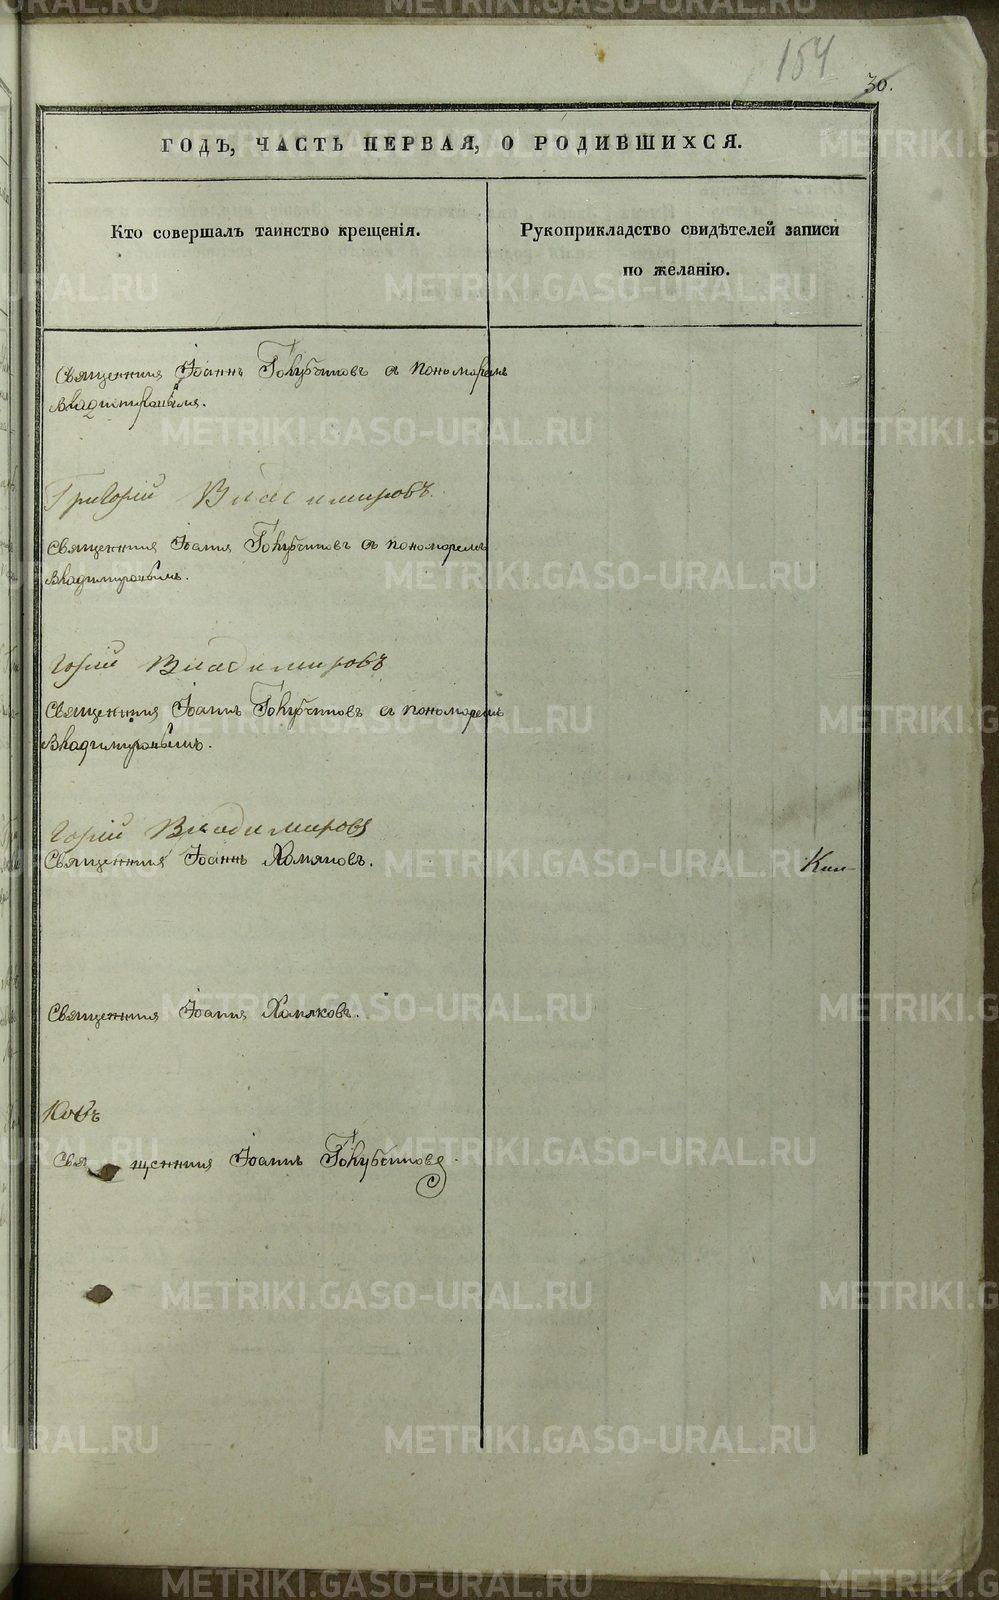 154
30.
ГОДЪ, ЧАСТЬ ПЕРВАЯ, О РОДИВШИХСЯ.
Кто совершалъ таинство крещенія.
Рукоприкладство свидѣтелей записи
по желанію.
Священник Іоаннъ Голубчиковъ с пономаремъ
Владимировымъ.
Григорій Владимировъ
Священник Іоаннъ Голубчиковъ с пономаремъ
Владимировымъ.
Владимировъ
Священник Іоаннъ Голубчиковъ с пономаремъ
Владимировымъ.
Владимировъ
Священник Іоаннъ Хомяковъ.
Священник Іоаннъ Хомяковъ.
Священник Іоаннъ Голубчиковъ
METRIKI.GASO-URAL.RU